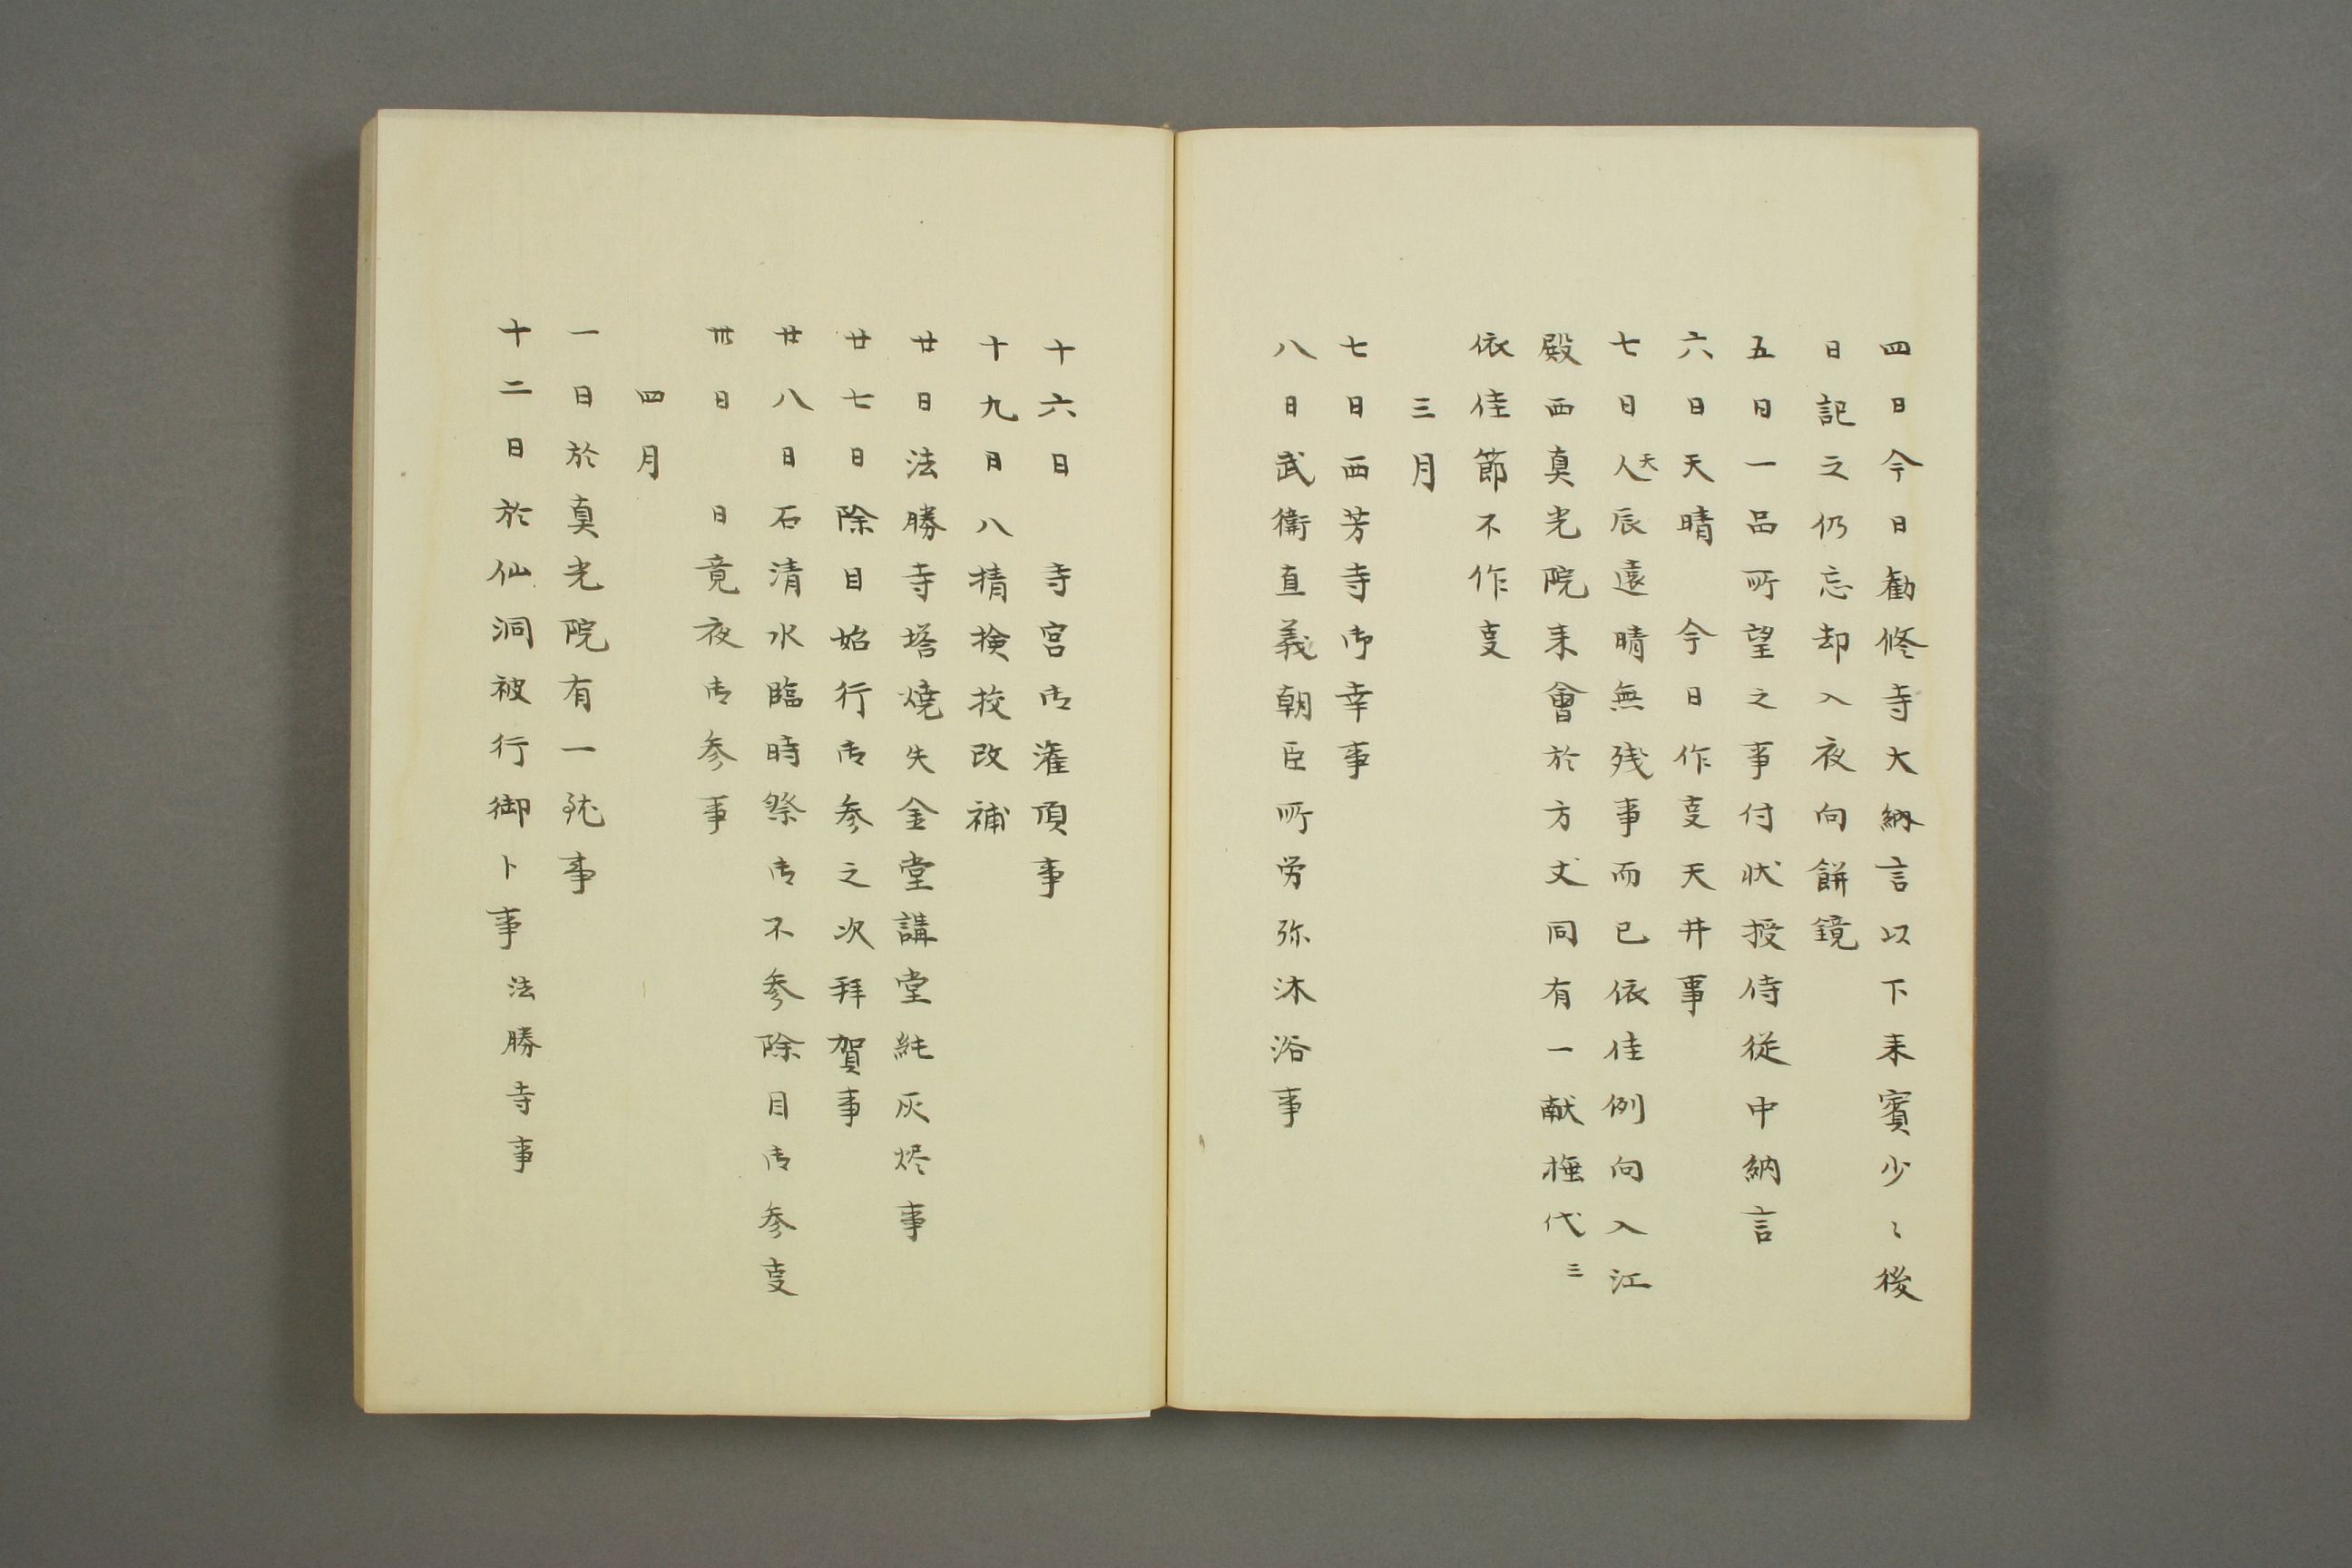 四日今日勧修寺大納言以下来賓少〻後
日記之仍忘却入夜向餅鏡
五日一品所望之事付状授侍従中納言
六日天晴　今日作叓天井事
七日人天辰遠晴無残事而已依佳例向入江
殿西真光院来會於方丈同有一献極代三
依佳節不作叓
三月
七日西芳寺御幸事
八日武衛直義朝臣所労弥沐浴事
十六日　寺宮御潅頂事
十九日八揹検校改補
廿日法勝寺塔焼失金堂講堂純灰燼事
廿七日除目始行御参之次拝賀事
廿八日石清水臨時祭御不参除目御参叓
卅日　日竟夜御参事
四月
一日於真光院有一献事
十二日於仙洞被行御卜事法勝寺事